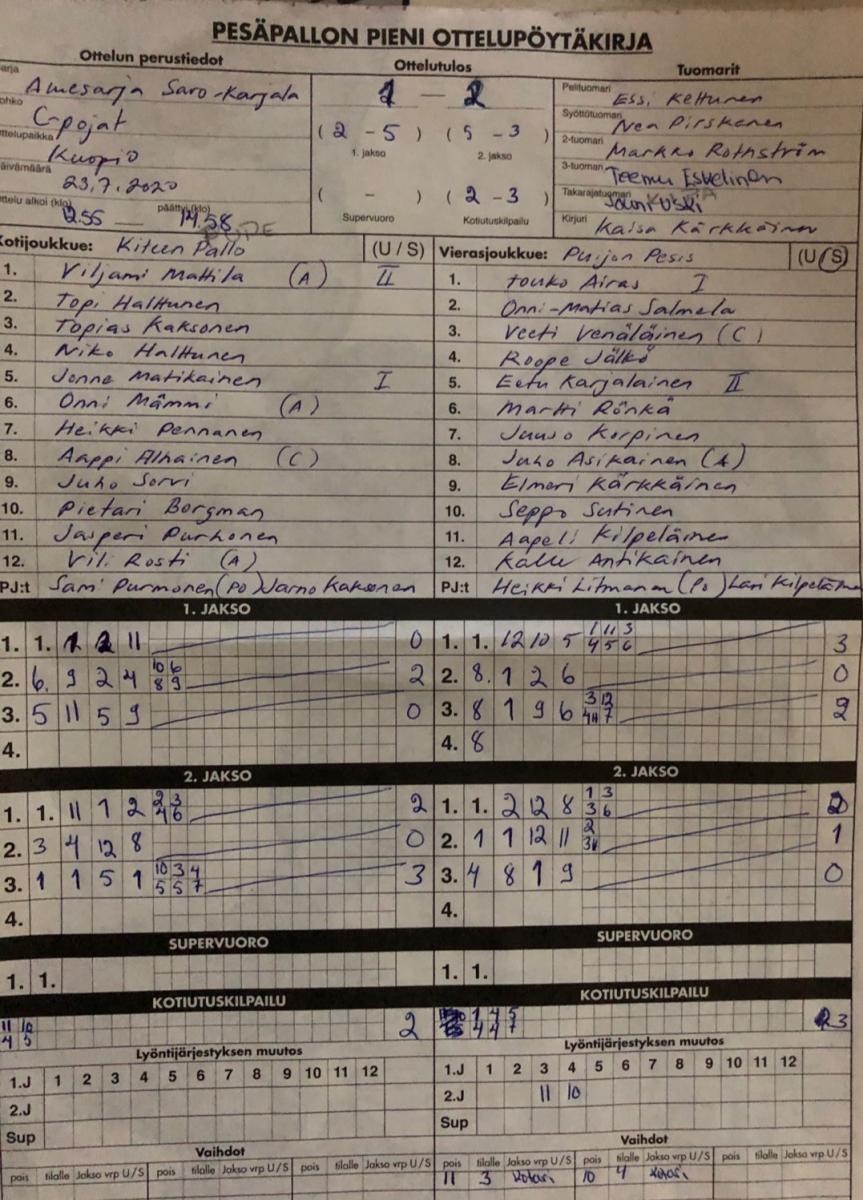 PESÄPALLON PIENI OTTELUPÖYTÄKIRJA
Ottelun perustiedot
Amesarja Saro-Karjala
C-pojat
Kuopio
23.7.2020
12.55 — päättyi (klo) 14.58
Ottelutulos
1 — 2
( 2 - 5 ) ( 5 - 3 )
1. jakso 2. jakso
( - ) ( 2 - 3 )
Supervuoro Kotiutuskilpailu
Tuomarit
Pelituomari Essi Kettunen
Syöttötuomari Nea Pirskanen
2-tuomari Markko Rothström
3-tuomari Teemu Eskelinen
Takarajatuomari Jouni Uski
Kirjuri Kaisa Kärkkäinen
Kotijoukkue: Kiteen Pallo (U / S)
1. Viljami Mattila (A) II
2. Topi Halttunen
3. Topias Kaksonen
4. Niko Halttunen
5. Jonne Matikainen I
6. Onni Mämmi (A)
7. Heikki Pennanen
8. Aappi Alhainen (C)
9. Juho Sorvi
10. Pietari Borgman
11. Jasperi Purhonen
12. Vili Rosti (A)
PJ:t Sami Purmonen (PO) Jarno Kaksonen
Vierasjoukkue: Puijon Pesis (U / S)
1. Touko Airas I
2. Onni-Matias Salmela
3. Veeti Venäläinen (C)
4. Roope Jälkö
5. Eetu Karjalainen II
6. Martti Rönkä
7. Juuso Korpinen
8. Juho Asikainen (A)
9. Elmeri Kärkkäinen
10. Seppo Sutinen
11. Aapeli Kilpeläinen
12. Kalle Antikainen
PJ:t Heikki Litmanen (PO) Lari Kilpeläinen
1. JAKSO
1. 1. 1 2 11 0
2. 6. 9 2 4 10 6 8 9 2
3. 5 11 5 9 0
4.
1. JAKSO
1. 1. 12 10 5 1 11 3 4 5 6 3
2. 8. 1 2 6 0
3. 8 1 9 6 3 12 4 7 2
4. 8
2. JAKSO
1. 1. 11 1 2 2 3 4 6 2
2. 3 4 12 8 0
3. 1 1 5 1 10 3 4 5 5 7 3
4.
2. JAKSO
1. 1. 2 12 8 1 3 3 6 2
2. 1 1 12 11 2 3 1
3. 4 8 1 9 0
4.
SUPERVUORO
1. 1.
SUPERVUORO
1. 1.
KOTIUTUSKILPAILU
11 10 4 5 2
KOTIUTUSKILPAILU
1 4 5 4 4 7 3
Lyöntijärjestyksen muutos
1.J 1 2 3 4 5 6 7 8 9 10 11 12
2.J
Sup
Lyöntijärjestyksen muutos
1.J 1 2 3 4 5 6 7 8 9 10 11 12
2.J 11 10
Sup
Vaihdot
pois tilalle Jakso vrp U/S pois tilalle Jakso vrp U/S pois tilalle Jakso vrp U/S
Vaihdot
pois tilalle Jakso vrp U/S pois tilalle Jakso vrp U/S pois tilalle Jakso vrp U/S
11 3 10 4